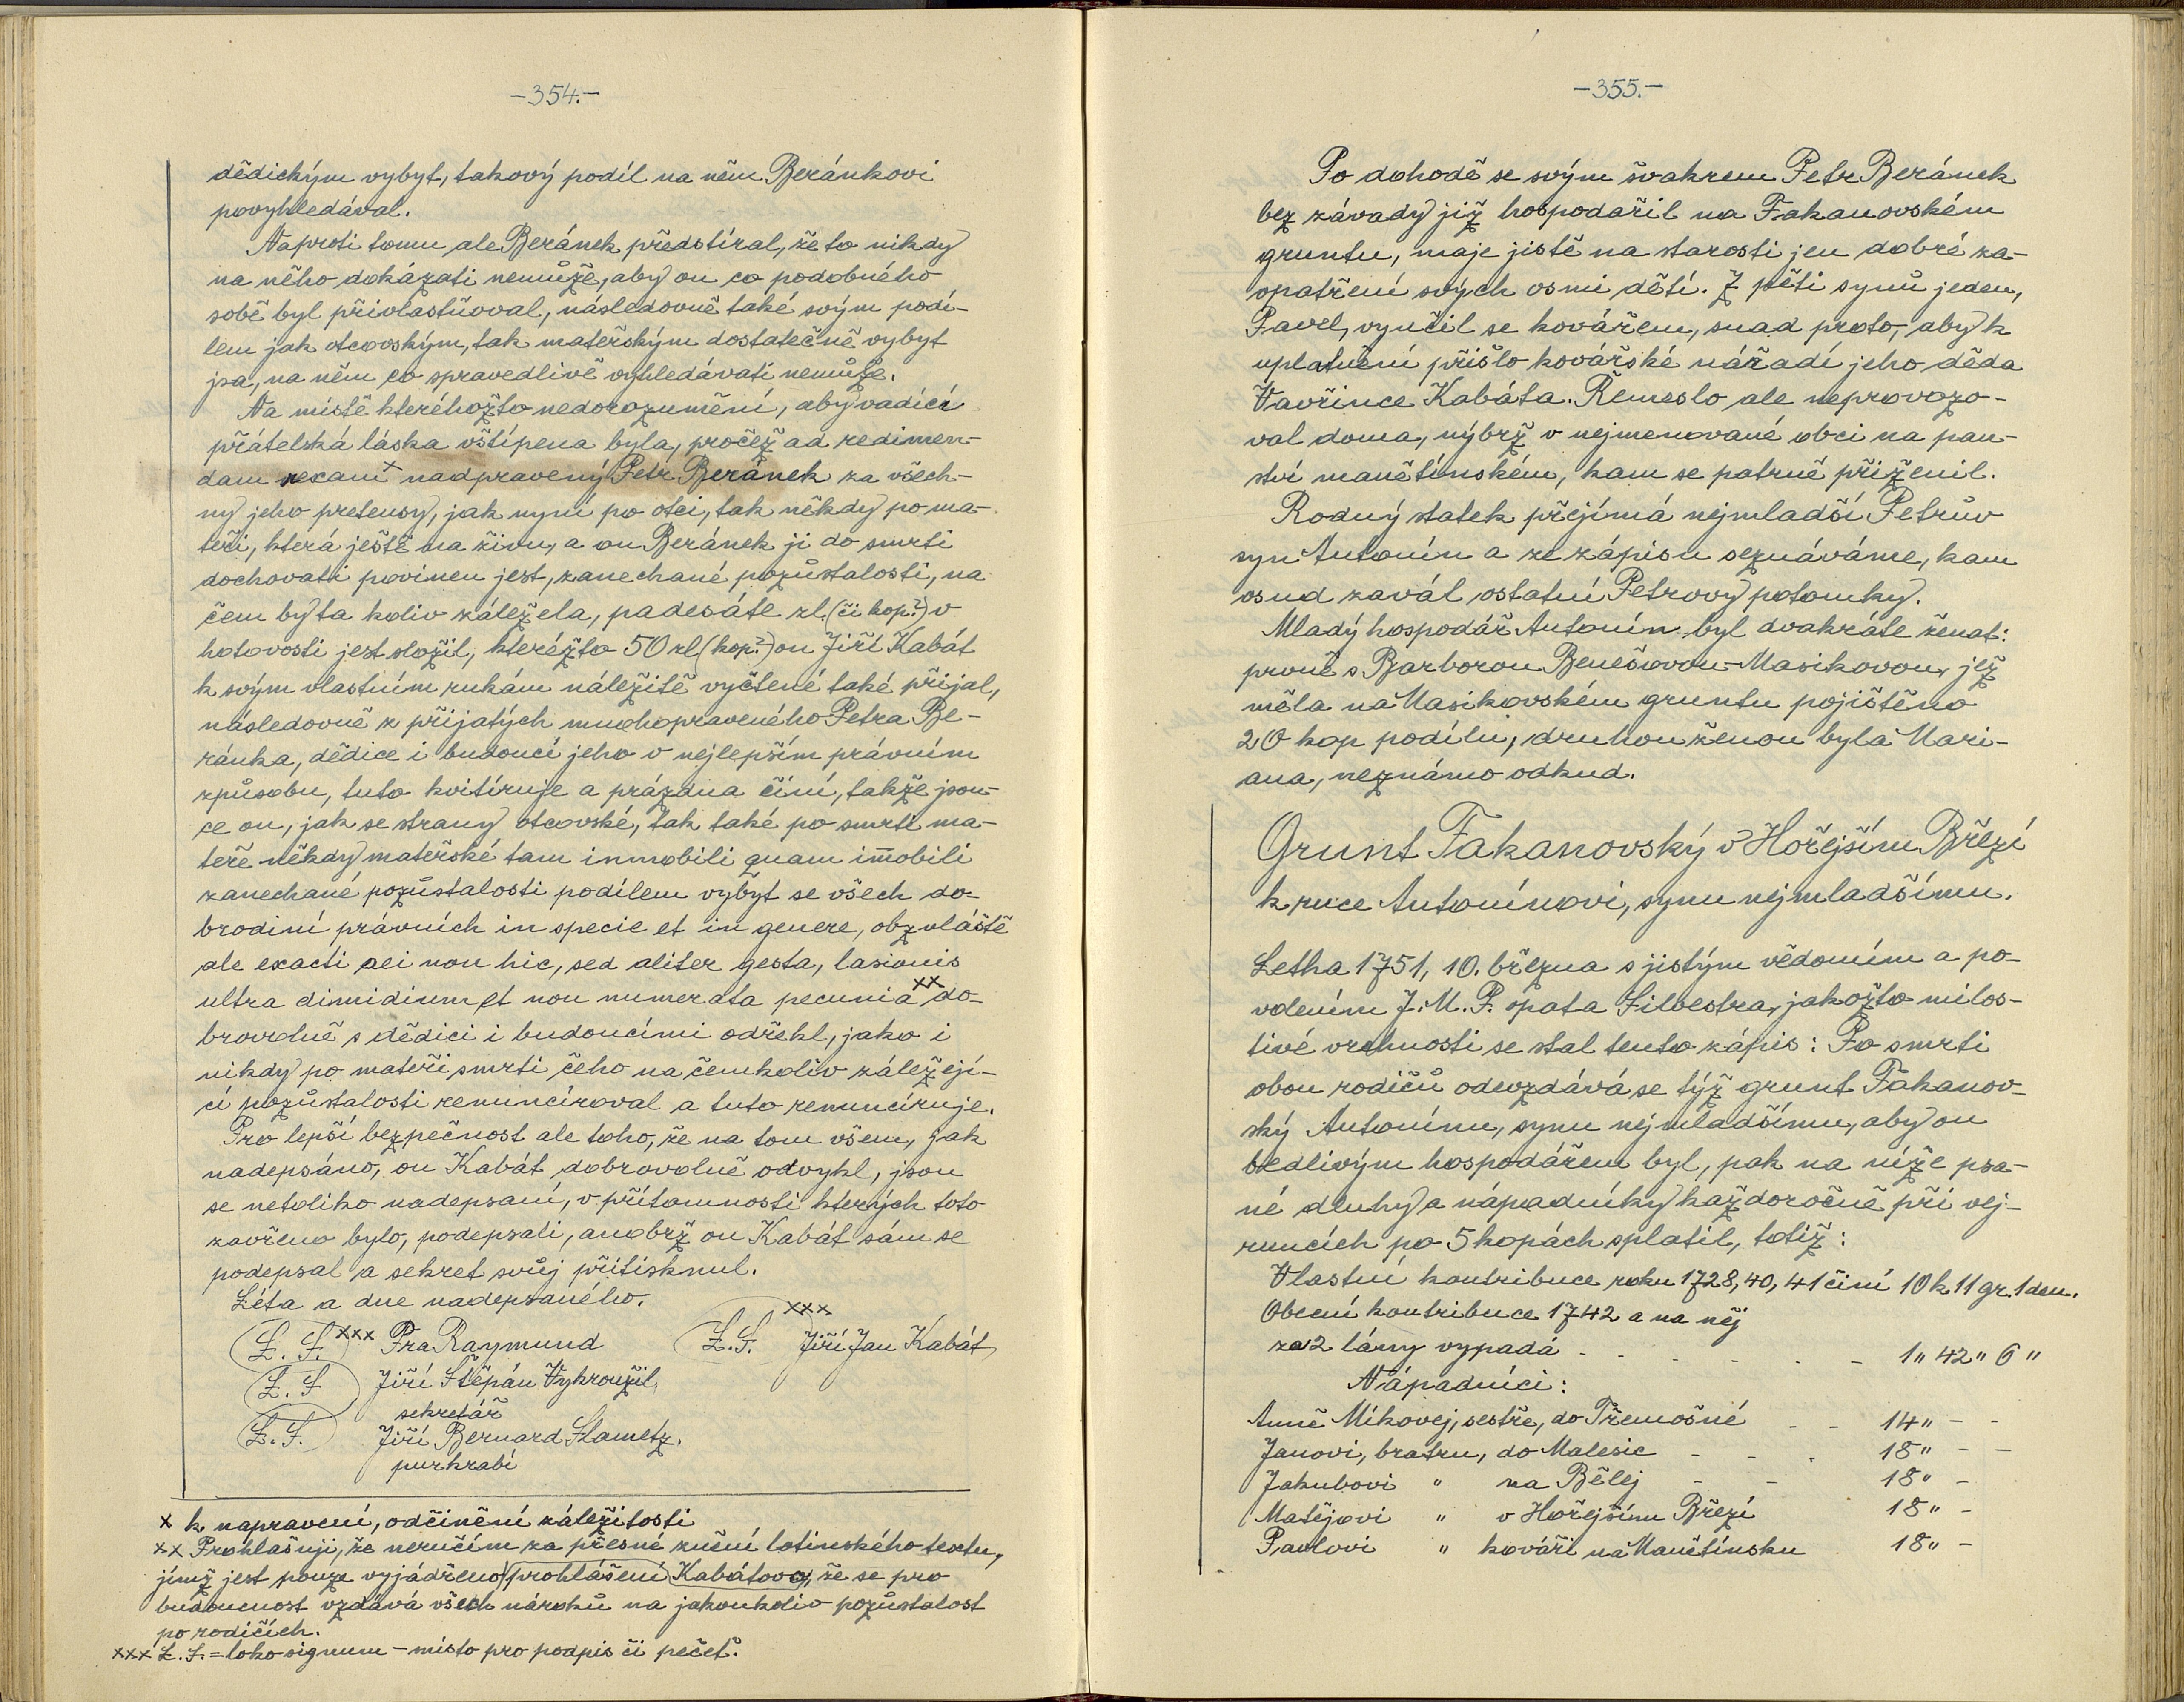 -354.-
dědickým vybyt, takový podíl na něm Beránkovi
povyhledával.
Naproti tomu ale Beránek předstíral, že to nikdy
na něho dokázati nemůže, aby on co podobného
sobě byl přivlastňoval, následovně také svým podí-
lem jak otcovským, tak mateřským dostatečně vybyt
jsa, na něm co spravedlivě vyhledávati nemůže.
Na místě kteréhožto nedorozumění, aby vadící
přátelská láska vštípena byla, pročež ad redimen-
dam vexam x nadpravený Petr Beránek za všech-
ny jeho pretensy, jak nyní po otci, tak někdy po ma-
teři, která ještě na živu, a on Beránek ji do smrti
dochovati povinen jest, zanechané pozůstalosti, na
čem by ta koliv záležela, padesáte zl. (či kop?) v
hotovosti jest složil, kteréžto 50 zl (kop?) on Jiří Kabát
k svým vlastním rukám náležitě vyčtené také přijal,
následovně z přijatých mnohopraveného Petra Be-
ránka, dědice i budoucí jeho v nejlepším právním
způsobu, tuto kvitíruje a prázdna činí, takže jsou-
ce on, jak se strany otcovské, tak také po smrti ma-
teře někdy mateřské tam inmobili quam im̄obili
zanechané pozůstalosti podílem vybyt se všech do-
brodiní právních in specie et in genere, obzvláště
ale exacti aei non hic, sed aliter gesta, lasionis
ultra dimidium et non numerata pecunia xx do-
brovolně s dědici i budoucími odřekl, jako i
nikdy po mateři smrti čeho na čemkoliv záležejí-
cí pozůstalosti renuncíroval a tuto renuncíruje.
Pro lepší bezpečnost ale toho, že na tom všem, jak
nadepsáno, on Kabát dobrovolně odvykl, jsou
se netoliko nadepsaní, v přítomnosti kterých toto
zavřeno bylo, podepsali, anobrž on Kabát sám se
podepsal a sekret svůj přitisknul.
Léta a dne nadepsaného.
L. S. xxx Fra Raymund
L. S. xxx Jiří Jan Kabát
L. S Jiří Štěpán Vykroužil,
sekretář
L. S. Jiří Bernard Slametz,
purkrabí
x k napravení, odčinění záležitosti
xx Prohlašuji, že neručím za přesné znění latinského textu,
jímž jest pouze vyjádřeno prohlášení Kabátovo, že se pro
budoucnost vzdává všech nároků na jakoukoliv pozůstalost
po rodičích.
xxx L. S. = loko signum - místo pro podpis či pečeť.
-355.-
Po dohodě se svým švakrem Petr Beránek
bez závady již hospodařil na Fakanovském
gruntu, maje jistě na starosti jen dobré za-
opatření svých osmi dětí. Z pěti synů jeden,
Pavel, vyučil se kovářem, snad proto, aby k
uplatnění přišlo kovářské nářadí jeho děda
Vavřince Kabáta. Řemeslo ale neprovozo-
val doma, nýbrž v nejmenované obci na pan-
ství manětínském, kam se patrně přiženil.
Rodný statek přejímá nejmladší Petrův
syn Antonín a ze zápisu seznáváme, kam
osud zavál ostatní Petrovy potomky.
Mladý hospodář Antonín byl dvakráte ženat:
prvně s Barborou Benešovou-Masikovou, jež
měla na Masikovském gruntu pojištěno
20 kop podílu, druhou ženou byla Mari-
ana, neznámo odkud.
Grunt Fakanovský v Hořejším Březí
k ruce Antonínovi, synu nejmladšímu.
Letha 1751, 10. března s jistým vědomím a po-
volením J. M. P. opata Silvestra, jakožto milos-
tivé vrchnosti se stal tento zápis: Po smrti
obou rodičů odevzdává se týž grunt Fakanov-
ský Antonínu, synu nejmladšímu, aby on
bedlivým hospodářem byl, pak na níže psa-
né dluhy a nápadníky každoročně při vej-
runcích po 5 kopách splatil, totiž:
Vlastní kontribuce roku 1728, 40, 41 činí 10 k 11 gr. 1 den.
Obecní kontribuce 1742 a na něj
za 2 lány vypadá - - - - - - 1 " 42 " 6 "
Nápadníci:
Anně Míkovej, sestře, do Třemošné - - 14 " - -
Janovi, bratru, do Malesic - - . 18 " - -
Jakubovi " na Bělej - - 18 " -
Matějovi " v Hořejším Březí 18 " -
Pavlovi " kováři na Manětínsku 18 " -